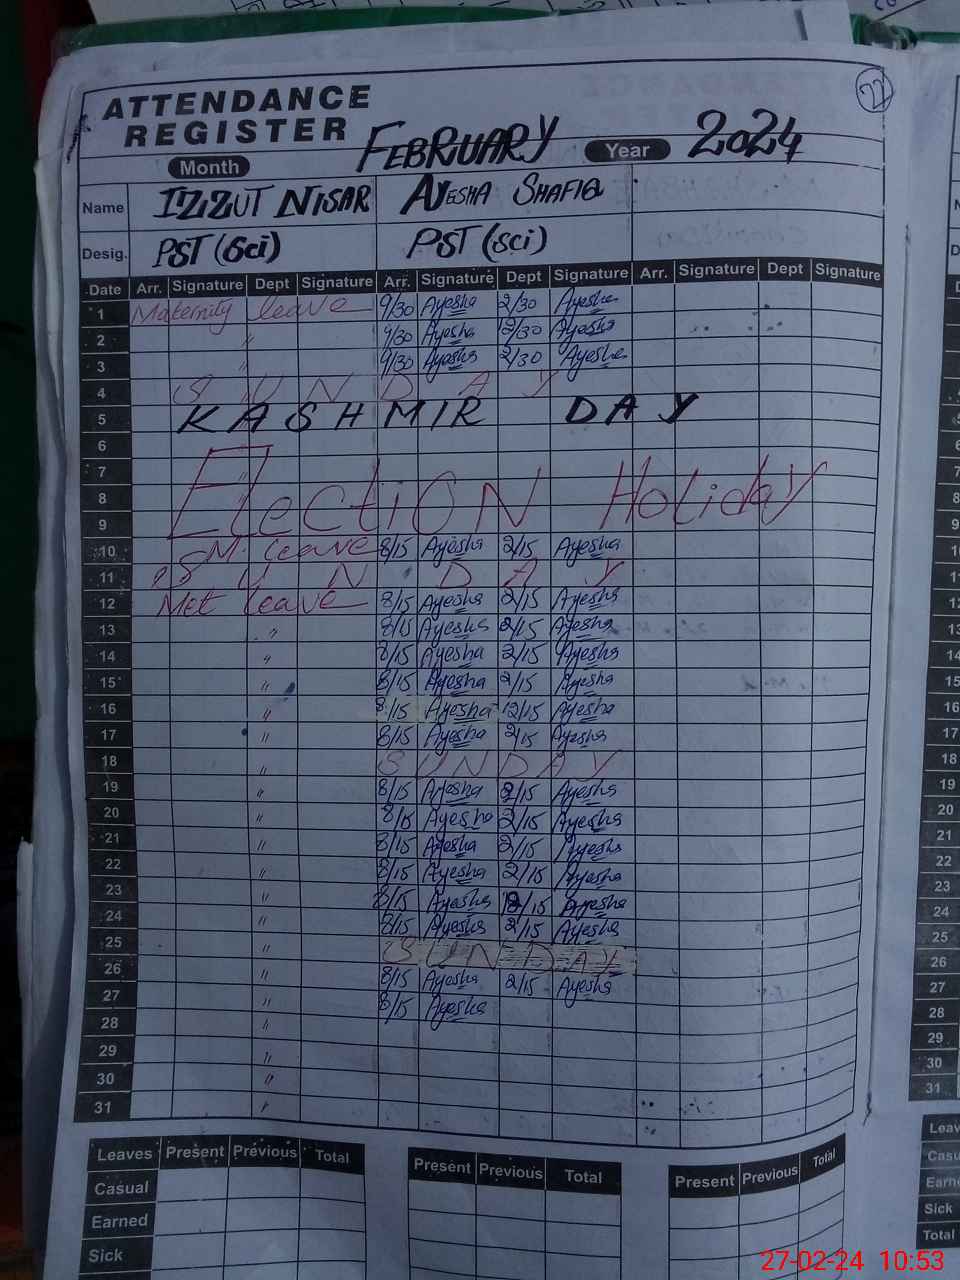 22
ATTENDANCE
REGISTER
Month FEBRUARY Year 2024
Name IZZUT NISAR AYESHA SHAFIQ
Desig. PST (Sci) PST (sci)
Date Arr. Signature Dept Signature Arr. Signature Dept Signature Arr. Signature Dept Signature
1 Maternity leave 9/30 Ayesha 2/30 Ayesha
2 " 9/30 Ayesha 12/30 Ayesha
3 " 9/30 Ayesha 2/30 Ayesha
4 SUNDAY
5 KASHMIR DAY
6
7 "
8 Election Holiday
9
10 M. leave 8/15 Ayesha 2/15 Ayesha
11 SUNDAY
12 Met leave 8/15 Ayesha 2/15 Ayesha
13 " 8/15 Ayesha 2/15 Ayesha
14 " 8/15 Ayesha 2/15 Ayesha
15 " 8/15 Ayesha 2/15 Ayesha
16 " 8/15 Ayesha 12/15 Ayesha
17 " 8/15 Ayesha 2/15 Ayesha
18 " SUNDAY
19 " 8/15 Ayesha 2/15 Ayesha
20 " 8/15 Ayesha 2/15 Ayesha
21 " 8/15 Ayesha 2/15 Ayesha
22 " 8/15 Ayesha 2/15 Ayesha
23 " 8/15 Ayesha 12/15 Ayesha
24 " 8/15 Ayesha 2/15 Ayesha
25 " SUNDAY
26 " 8/15 Ayesha 2/15 Ayesha
27 " 8/15 Ayesha
28 "
29 "
30 "
31 "
Leaves Present Previous Total Present Previous Total Present Previous Total
Casual
Earned
Sick
27-02-24 10:53